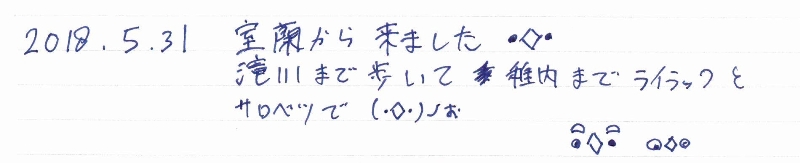 2018.5.31 室蘭から来ました •◇•
滝川まで歩いて 稚内までライラックと
サロベツで (・◇・)ノお
•◇• o◇o